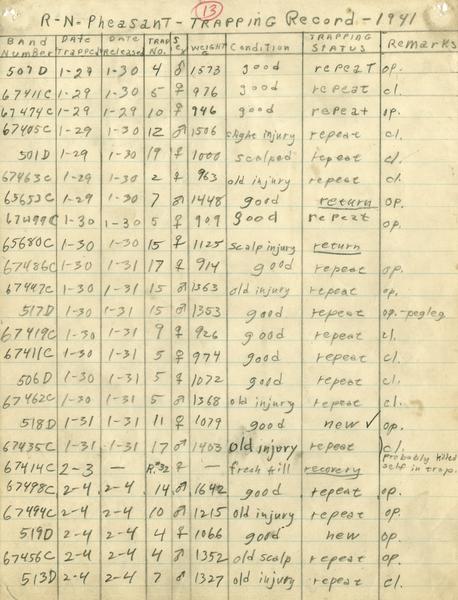 13
R-N-Pheasant-Trapping Record-1941
Band Number Date Trapped Date Released Trap No. Sex Weight Condition Trapping Status Remarks
507D 1-29 1-30 4 ♂ 1573 good repeat op.
67411C 1-29 1-30 5 ♀ 976 good repeat cl.
67474C 1-29 1-29 10 ♀ 946 good repeat op.
67405C 1-29 1-30 12 ♂ 1506 slight injury repeat cl.
501D 1-29 1-30 19 ♀ 1000 scalped repeat cl.
67463C 1-29 1-30 2 ♀ 963 old injury repeat cl.
65653C 1-29 1-30 7 ♂ 1448 good return op.
67499C 1-30 1-30 5 ♀ 909 good repeat op.
65680C 1-30 1-30 15 ♀ 1125 scalp injury return
67486C 1-30 1-31 17 ♀ 914 good repeat op.
67447C 1-30 1-31 15 ♂ 1363 old injury repeat op.
517D 1-30 1-31 15 ♂ 1353 good repeat op.-pegleg
67419C 1-30 1-31 9 ♀ 926 good repeat cl.
67411C 1-30 1-31 5 ♀ 974 good repeat cl.
506D 1-30 1-31 5 ♀ 1072 good repeat cl.
67462C 1-30 1-31 5 ♂ 1368 old injury repeat cl.
518D 1-31 1-31 11 ♀ 1079 good new ✓ op.
67435C 1-31 1-31 17 ♂ 1403 old injury repeat cl.
67414C 2-3 — R.32 ♀ — fresh kill recovery probably killed self in trap.
67498C 2-4 2-4 14 ♂ 1642 good repeat op.
67494C 2-4 2-4 10 ♂ 1215 old injury repeat op.
519D 2-4 2-4 4 ♀ 1066 good new op.
67456C 2-4 2-4 4 ♂ 1352 old scalp repeat op.
513D 2-4 2-4 7 ♂ 1327 old injury repeat cl.